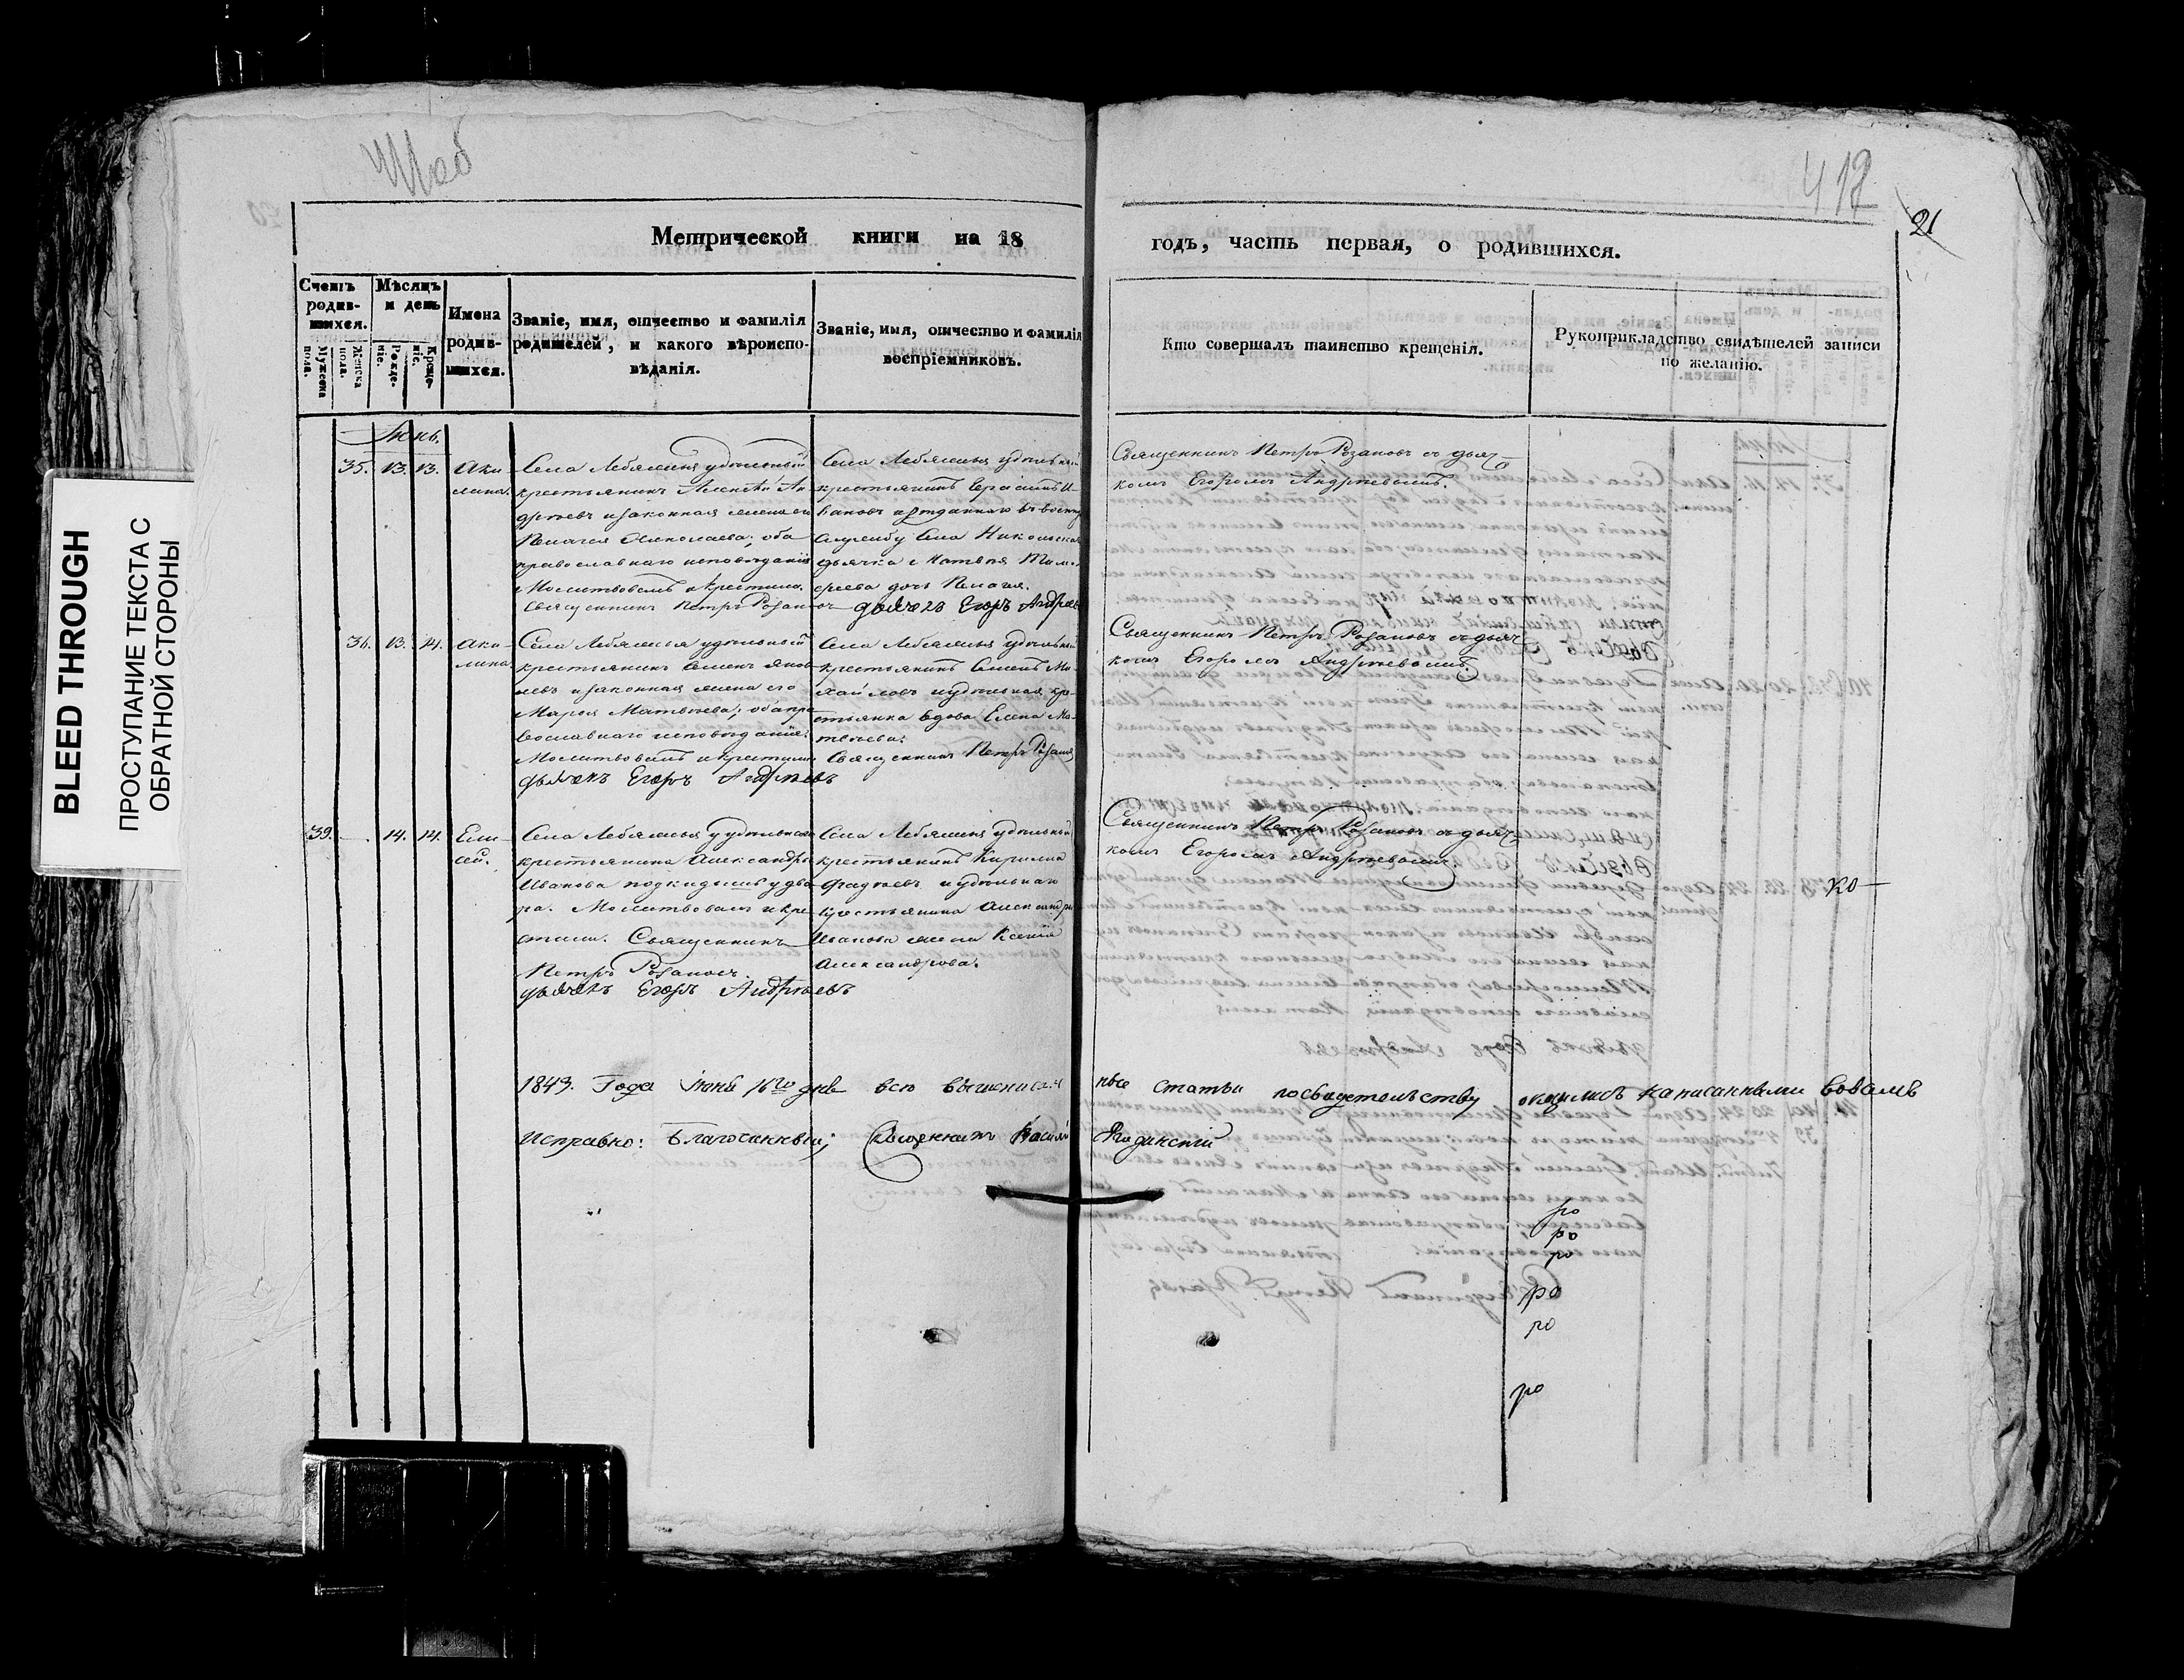 Шаб
418
21
Метрической книги на 18
годъ, часть первая, о родившихся.
Счетъ родив-шихся.
Мужеска пола.
Женска пола.
Мѣсяцъ и день
Рожде-нiе.
Креще-нiе.
Имена родив-шихся.
Званiе, имя, отчество и фамилiя
родителей, и какого вѣроиспо-
вѣданiя.
Званiе, имя, отчество и фамилiя
воспрiемниковъ.
Кто совершалъ таинство крещенiя.
Рукоприкладство свидѣтелей записи
по желанiю.
Iюнь.
35. 13. 13. Аки-
лина.
Села Лебяжья удѣльный
крестьянинъ Алексѣй Ан-
дреевъ и законная жена его
Пелагея; оба
православнаго исповѣданiя
Молитвовалъ и крестилъ.
Священникъ Петръ Розановъ дьячекъ Егоръ Андреевъ
Села Лебяжья удѣльный
крестьянинъ Герасимъ И-
вановъ и отданнаго въ военную
службу Села Никольска
дьячка Матвѣя Тимо-
феева дочь Пелагея.
Священникъ Петръ Розановъ съ дьяч-
комъ Егоромъ Андреевымъ.
36. 13. 14. Аки-
лина.
Села Лебяжья удѣльный
крестьянинъ Семенъ Яков-
левъ и законная жена его
Марья Матвѣева; оба пра-
вославнаго исповѣданiя.
Молитвовалъ и крестилъ
дьячекъ Егоръ Андреевъ
Села Лебяжья удѣльный
крестьянинъ Семенъ Ми-
хайловъ и удѣльная кре-
стьянка вдова Елена Ма-
твѣева.
Священникъ Петръ Розановъ
Священникъ Петръ Розановъ съ дьяч-
комъ Егоромъ Андреевымъ.
39. — 14. 14. Ели-
сей.
Села Лебяжья у удѣльнаго
крестьянина Александра
Иванова подкидышъ у дво-
ра. Молитвовалъ и кре-
стилъ. Священникъ
Петръ Розановъ.
дьячекъ Егоръ Андреевъ
Села Лебяжья удѣльный
крестьянинъ Кирилла
Фадѣевъ и удѣльнаго
крестьянина Александра
Иванова жена Ксенiя
Александрова.
Священникъ Петръ Розановъ съ дьяч-
комъ Егоромъ Андреевымъ.
ко—
1843. Года Iюня 16го дня всѣ вышеписан-
ные статьи по свидетельству оказались написанными во всемъ
Исправно: Благочинный Священникъ Василiй
ро
ро
ро
ро
ро
ро
BLEED THROUGH
ПРОСТУПАНИЕ ТЕКСТА С
ОБРАТНОЙ СТОРОНЫ